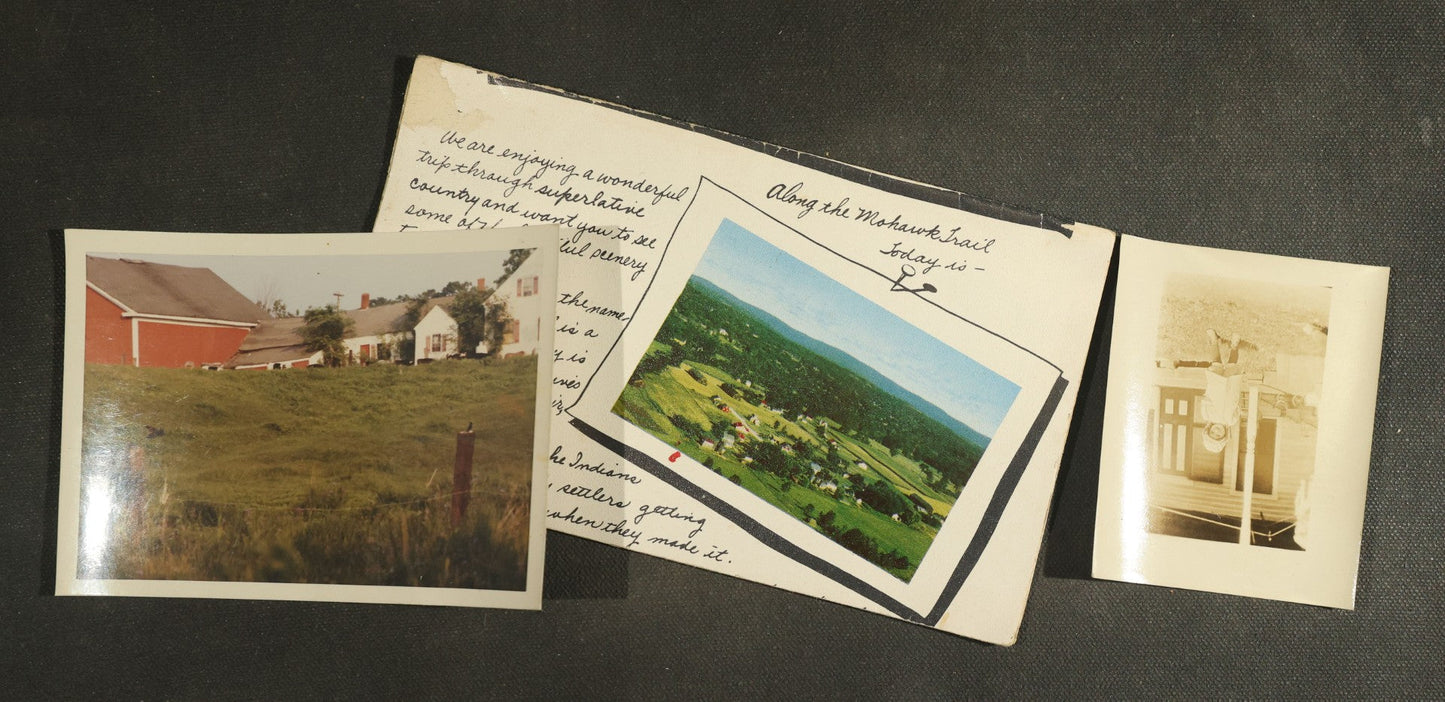 We are enjoying a wonderful
trip through superlative
country and want you to see
some of the
scenery
the name-
is a
is
Indians
settlers getting
when they made it.
Along the Mohawk Trail
Today is-